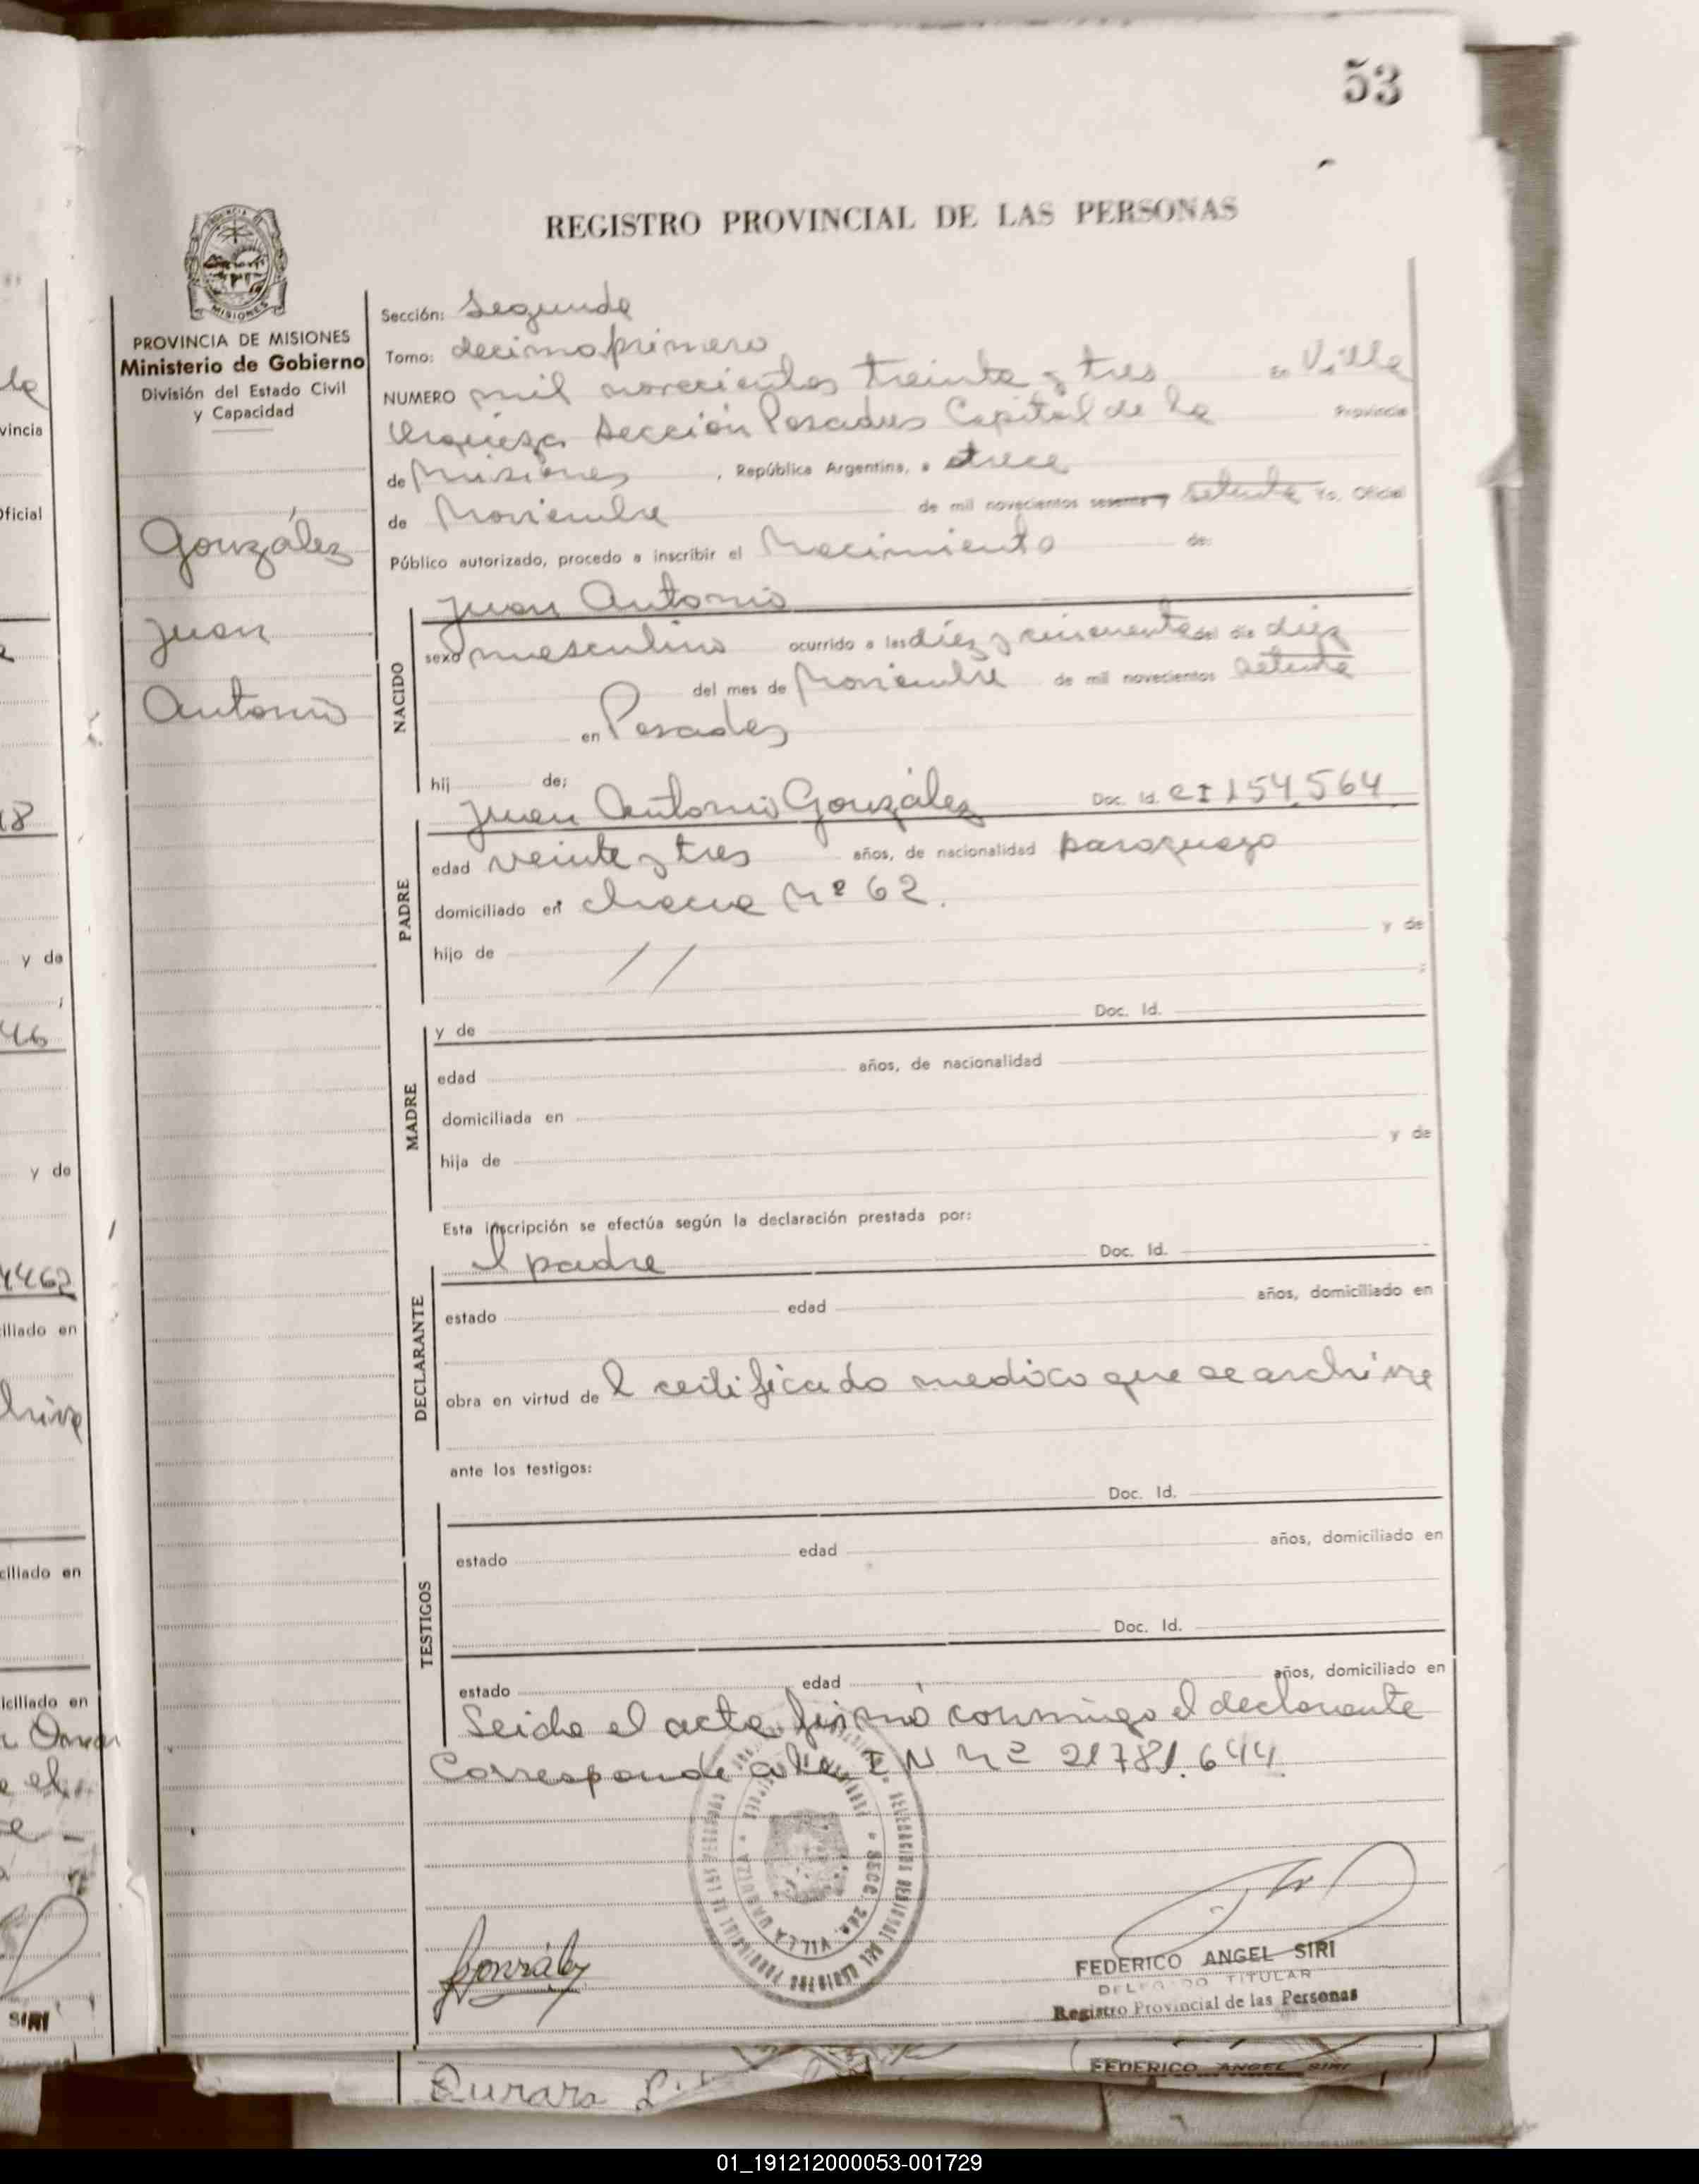 53
REGISTRO PROVINCIAL DE LAS PERSONAS
MISIONES
PROVINCIA DE MISIONES
Ministerio de Gobierno
División del Estado Civil
y Capacidad
González
Juan
Antonio
Sección: Segunda
Tomo: decimo primero
NUMERO mil novecientos treinta y tres en Villa
Urquiza Sección Posadas Capital de la Provincia
de Misiones , República Argentina, a trece
de Noviembre de mil novecientos sesenta y setenta Yo, Oficial
Público autorizado, procedo a inscribir el Nacimiento de:
NACIDO
Juan Antonio
sexo masculino ocurrido a las diez y cincuenta del día diez
del mes de Noviembre de mil novecientos setenta
en Posadas
hij de;
PADRE
Juan Antonio González Doc. Id. CI 154.564
edad veinte y tres años, de nacionalidad paraguayo
domiciliado en chacra Nº 62.
hijo de // y de
;
MADRE
y de Doc. Id.
edad años, de nacionalidad
domiciliada en
hija de y de
Esta inscripción se efectúa según la declaración prestada por:
DECLARANTE
el padre Doc. Id.
estado edad años, domiciliado en
obra en virtud de l certificado medico que se archiva
ante los testigos:
TESTIGOS
Doc. Id.
estado edad años, domiciliado en
Doc. Id.
estado edad años, domiciliado en
Leida el acta, firmó conmigo el declarante
Corresponde Nº 21781.644
SECC. 2da. VILLA URQUIZA
González
FEDERICO ANGEL SIRI
DELEGADO TITULAR
Registro Provincial de las Personas
FEDERICO ANGEL SIRI
vincia
Oficial
18
y de
46
y de
4462
iliado en
ciliado en
iciliado en
SIRI
01_191212000053-001729